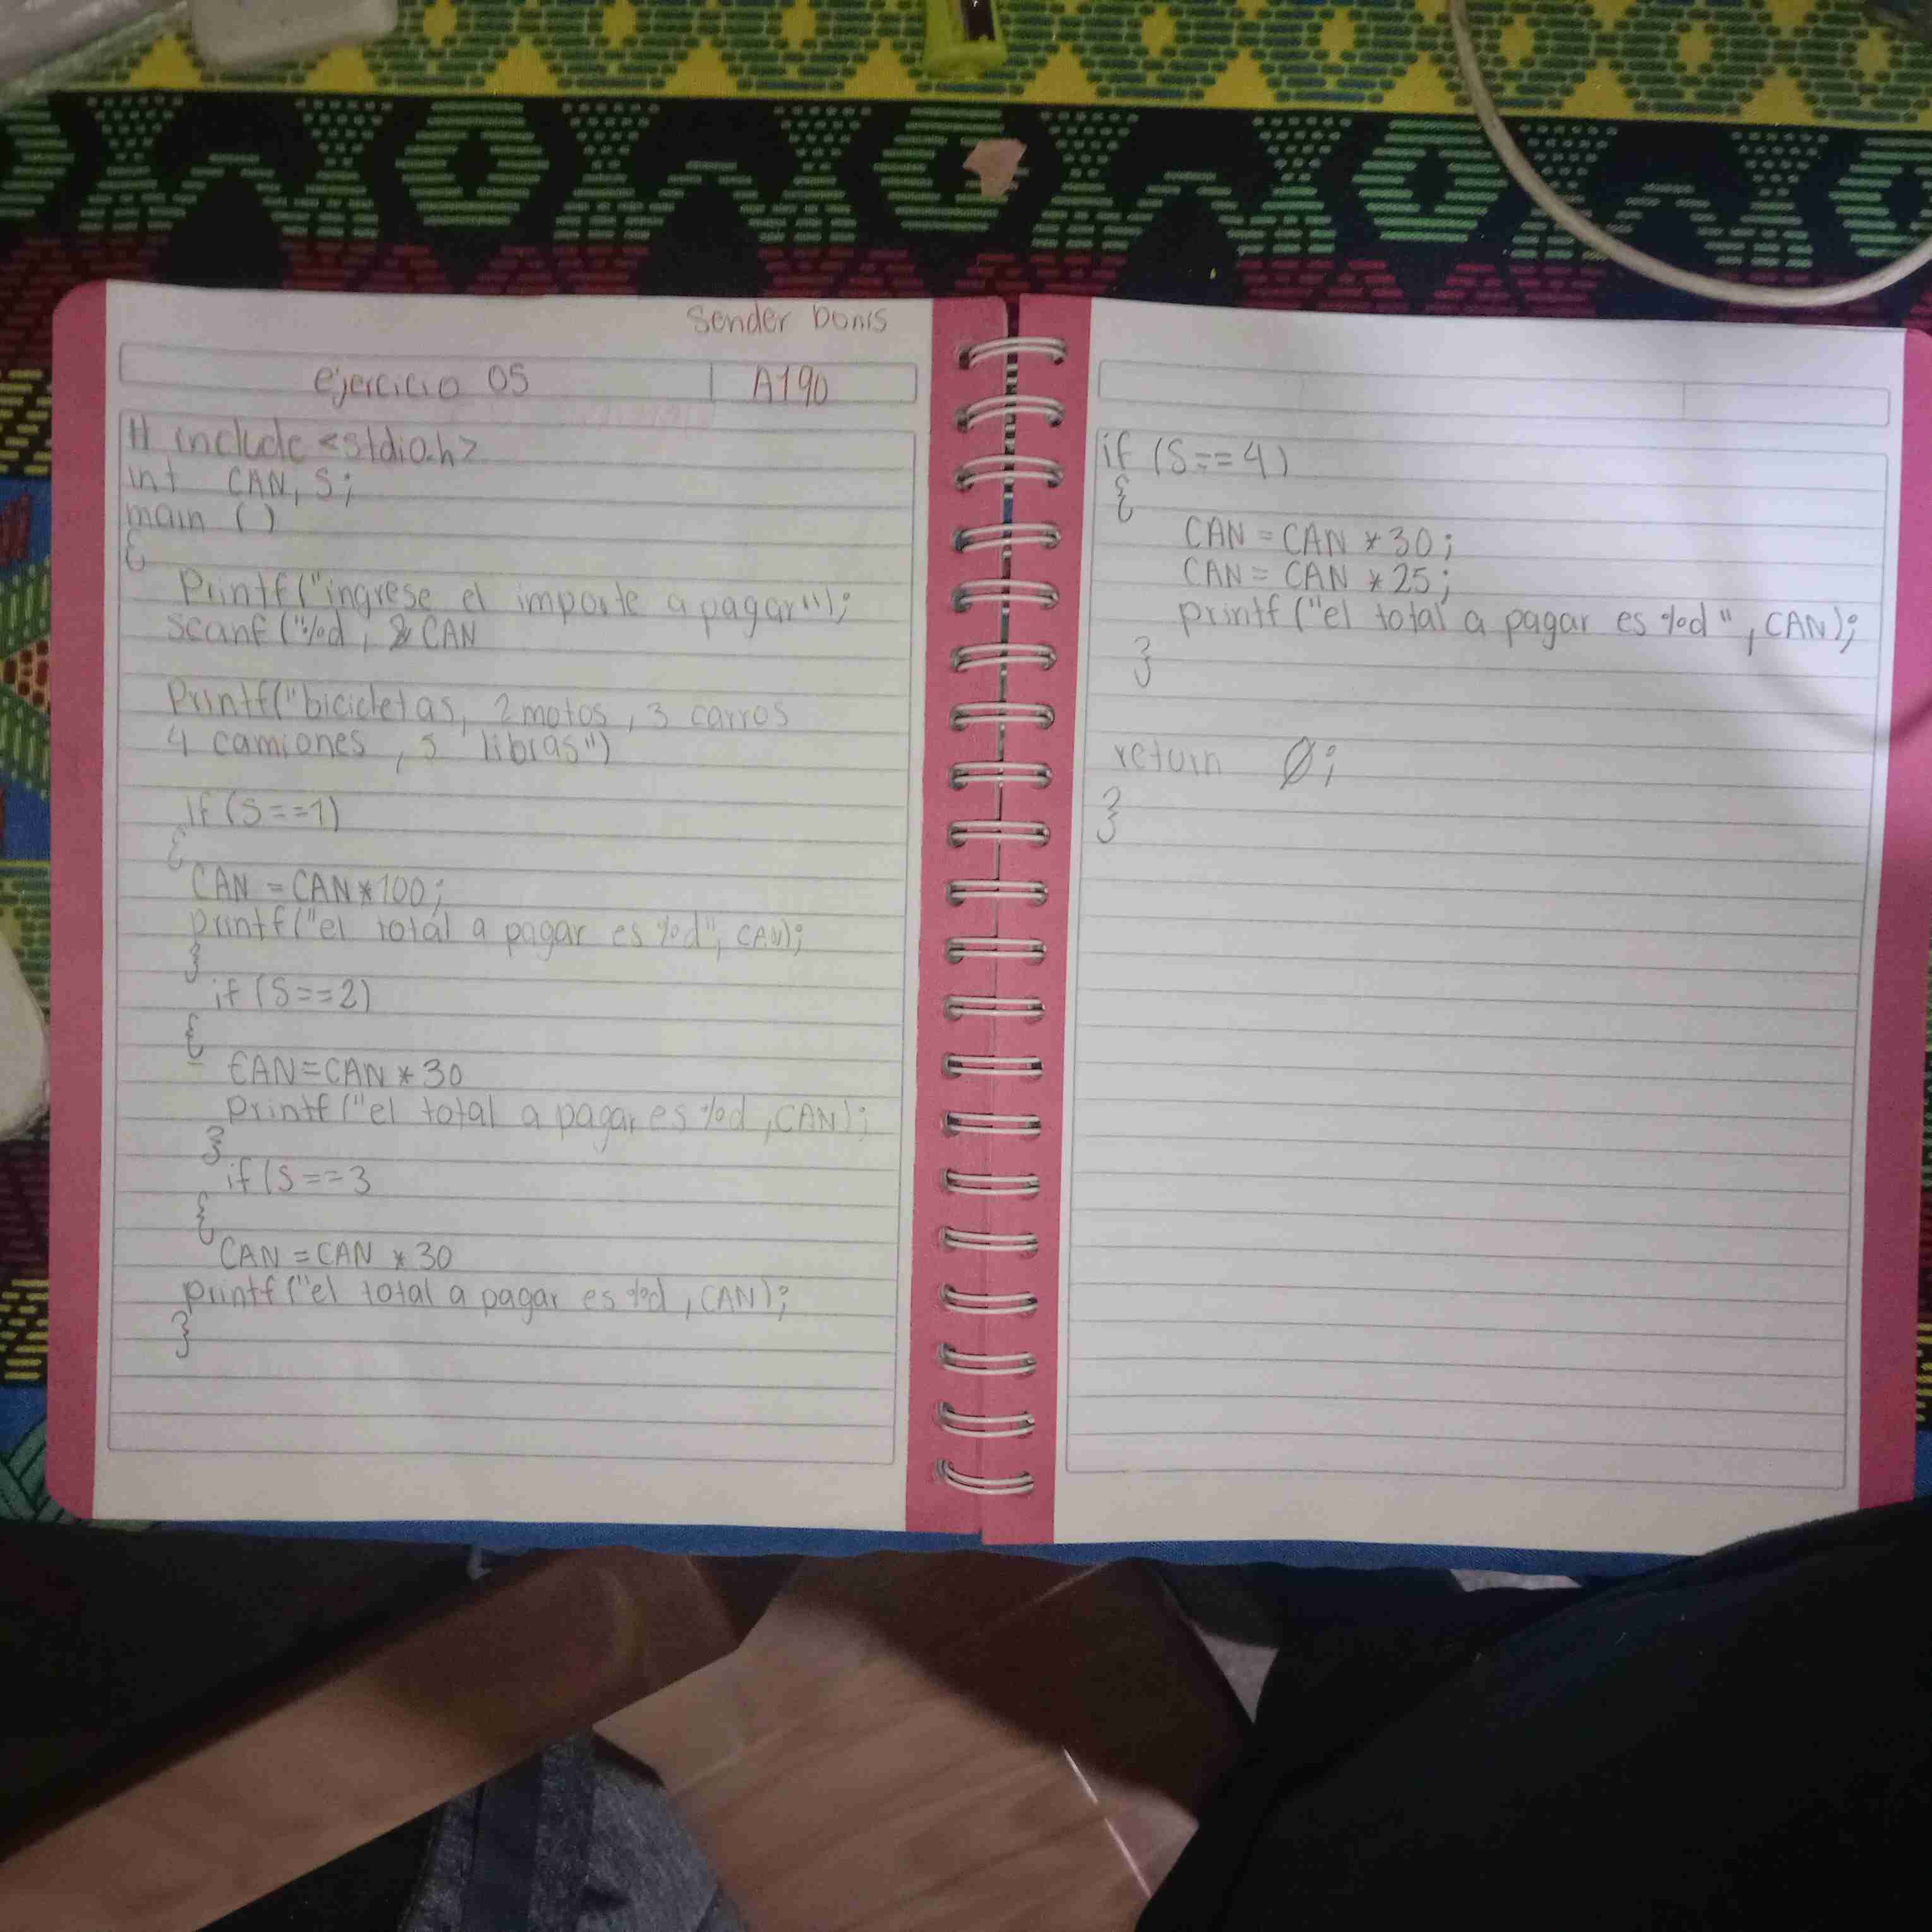 Sender Donis
ejercicio 05 A190
# include <stdio.h>
int CAN, S;
main ( )
{
Printf("ingrese el importe a pagar"");
scanf ("%d, & CAN
Printf("bicicletas, 2 motos, 3 carros
4 camiones, 5 libras")
if (S==1)
{
CAN = CAN*100;
printf("el total a pagar es %d", CAN);
}
if (S==2)
{
CAN=CAN * 30
printf ("el total a pagar es %d ,CAN);
}
if (S==3
{
CAN = CAN * 30
printf ("el total a pagar es %d , CAN);
}
if (S==4)
{
CAN = CAN * 30;
CAN = CAN * 25;
printf ("el total a pagar es %d" , CAN);
}
return 0;
}